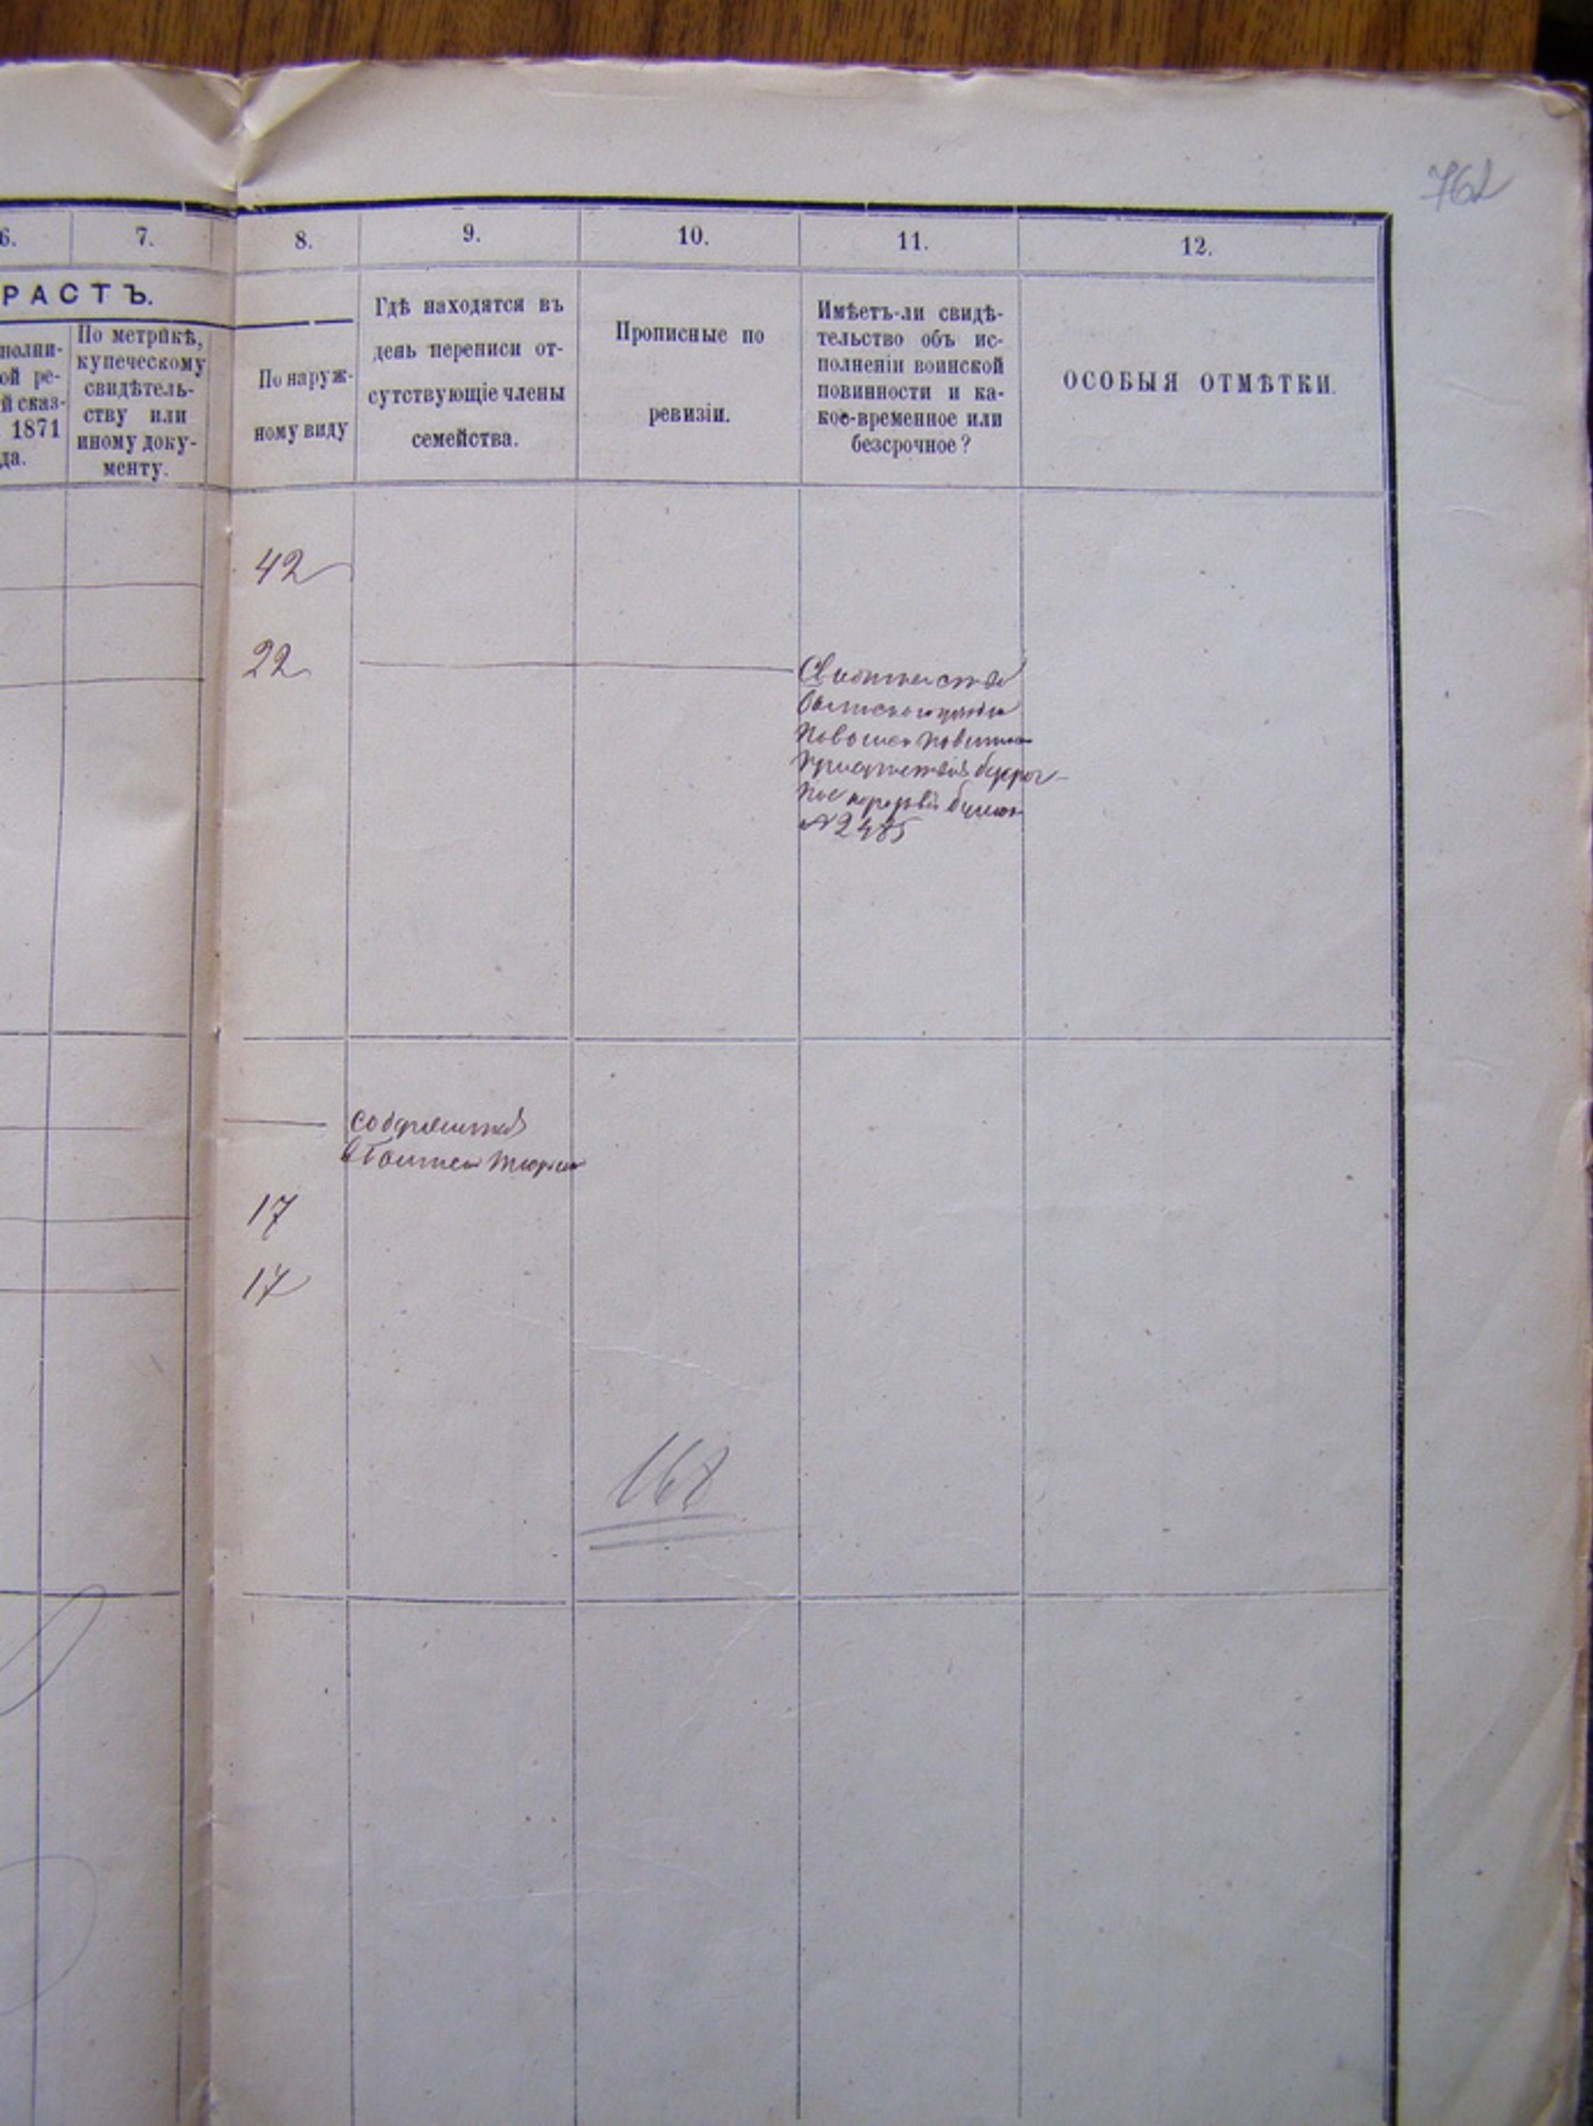 762
6. 7. 8. 9. 10. 11. 12.
РАСТЪ.
полни-
ой ре-
й сказ-
1871
да.
По метрикѣ,
купеческому
свидѣтель-
ству или
иному доку-
менту.
По наруж-
ному виду
Гдѣ находятся въ
день переписи от-
сутствующіе члены
семейства.
Прописные по
ревизіи.
Имѣетъ-ли свидѣ-
тельство объ ис-
полненіи воинской
повинности и ка-
кое-временное или
безсрочное?
ОСОБЫЯ ОТМѢТКИ.
42
22
повоинск повинно
присутствія
№ 2485
содержится
тюрьм
17
17
168